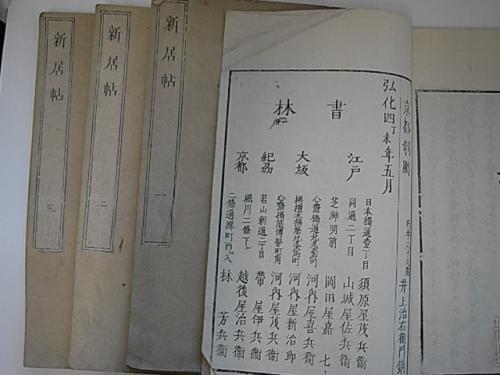 新居帖 三
新居帖 二
新居帖 一
京都
井上治右衛門
弘化四丁未年五月
書林
江戸
日本橋通壹丁目 須原屋茂兵衛
同通二丁目 山城屋佐兵衛
芝神明前 岡田屋嘉七
大坂
心齋橋 河内屋喜兵衛
河内屋新治郎
心齋橋 博労町角 河内屋茂兵衛
紀州
若山新通二丁目 帶屋伊兵衛
京都
堀川二條下 越後屋治兵衛
二條通 林芳兵衛